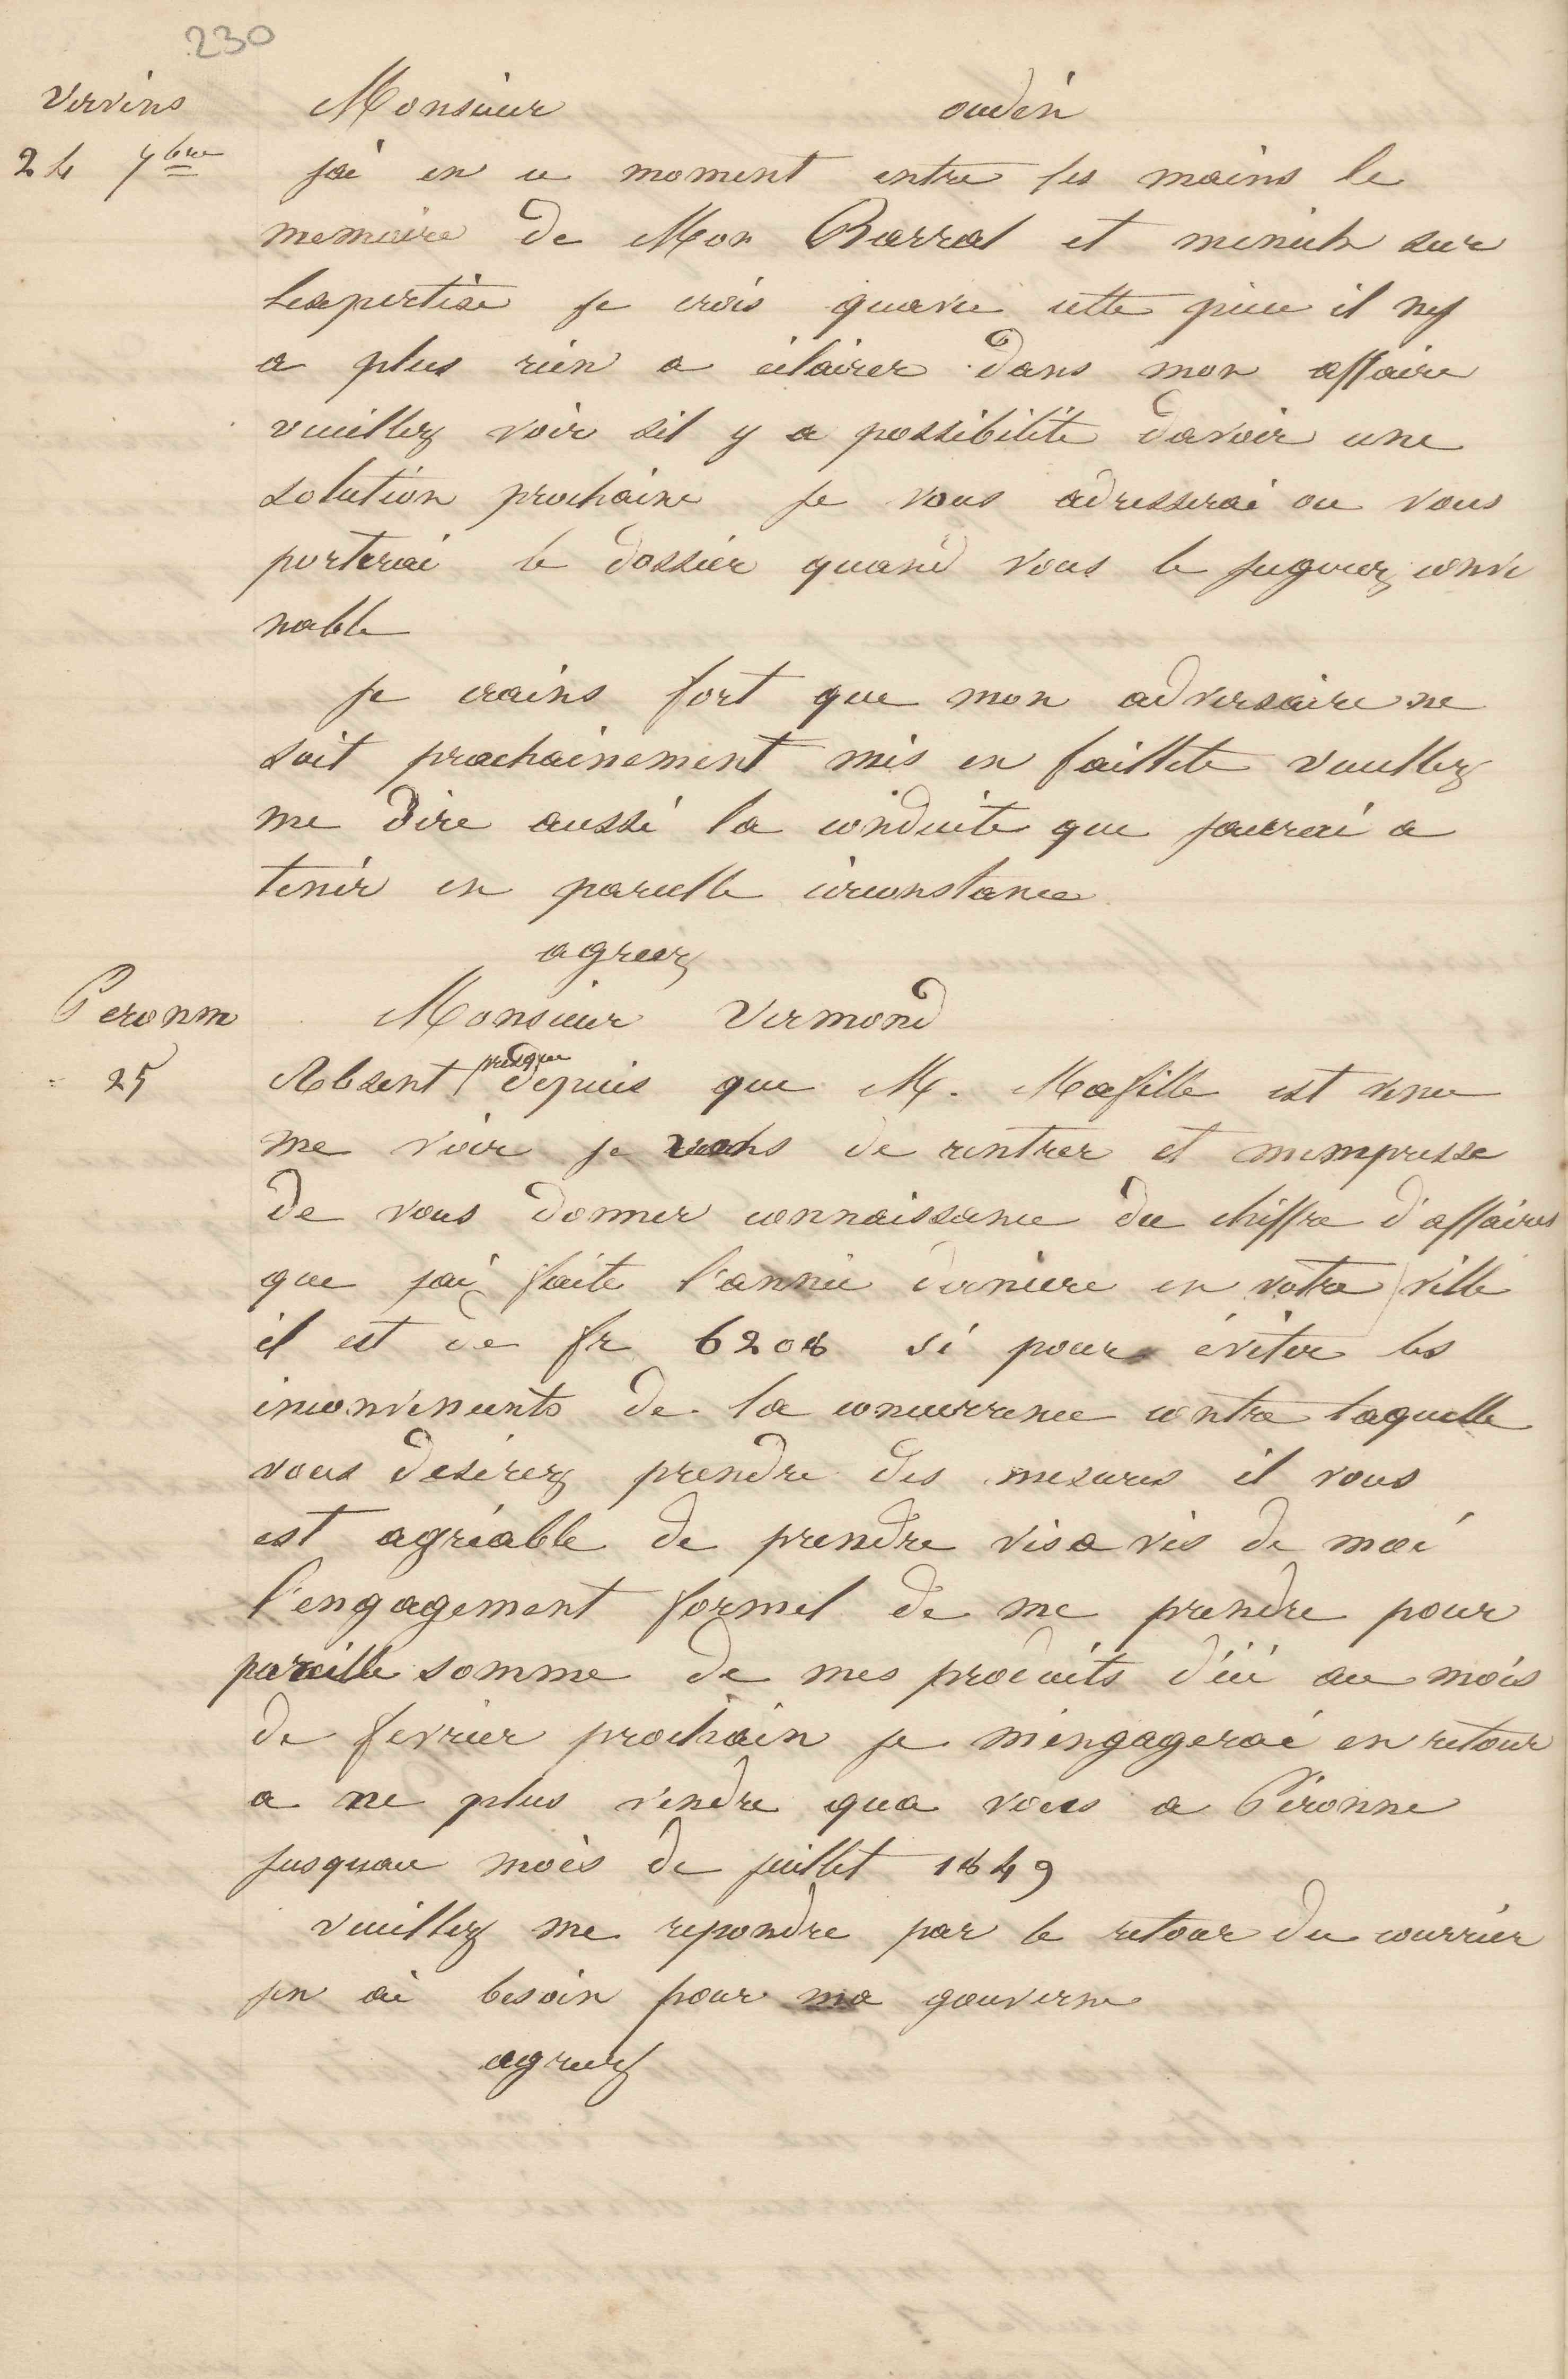 230
Vervins
Monsieur oudin
24 7bre
jai en ce moment entre les mains le
memoire de Mon Barral et minich sur
lexpertise je crois quavec cette piece il ny
a plus rien a eclairer dans mon affaire
veuillez voir sil y a possibilite davoir une
solution prochaine je vous adresserai ou vous
porterai le dossier quand vous le jugerez conve
nable
je crains fort que mon adversaire ne
soit prochainement mis en faillite veuillez
me dire aussi la conduite que jaurai a
tenir en pareille circonstance
agreez
Peronne
Monsieur Vermond
25
Absent presque depuis que M. Mafille est venu
me voir je viens de rentrer et mempresse
de vous donner connaissance du chiffre d'affaires
que jai faite l'année derniere en votre ville
il est de fr 6208 si pour éviter les
inconvenients de la concurrence contre laquelle
vous desirez prendre des mesures il vous
est agréable de prendre vis a vis de moi
l'engagement formel de me prendre pour
pareille somme de mes produits d'ici au mois
de fevrier prochain je m'engagerai en retour
a ne plus vendre qua vous a Péronne
jusquau mois de juillet 1849
veuillez me repondre par le retour du courrier
jen ai besoin pour ma gouverne
agreez